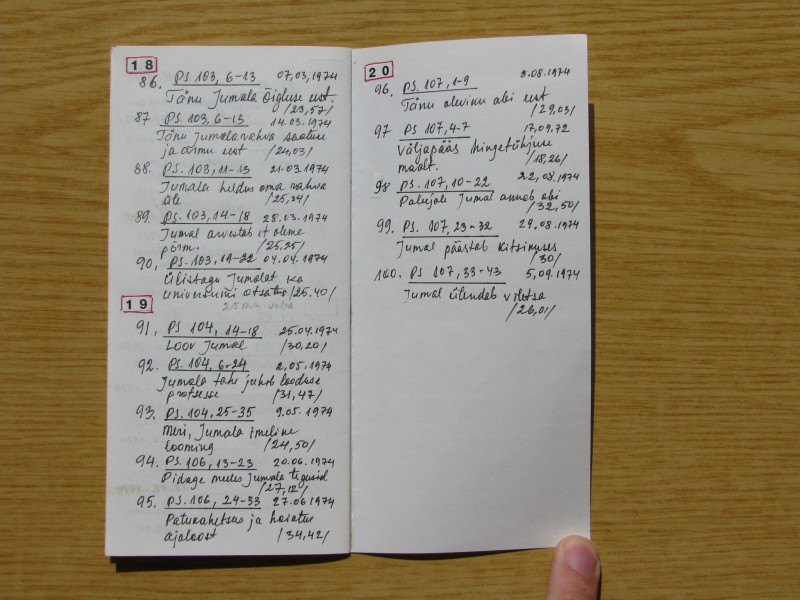 18
86. PS 103, 6-13 07,03,1974
Tänu Jumala Õigluse eest.
/23,57/
87 PS 103, 6-13 14.03.1974
Tänu Jumala rahva saatuse
ja armu eest /24,03/
88. PS. 103, 11-13 21.03.1974
Jumala heldus oma rahva
üle /25,24/
89. PS. 103, 14-18 28.03.1974
Jumal arvestab et oleme
põrm. /25,25/
90, PS. 103, 19-22 04.04.1974
Ülistagu Jumalat ka
universumi otsatus /25.40/
19
91, PS 104, 14-18 25.04.1974
Loov Jumal /30,20/
92. PS. 104, 6-24 2,05.1974
Jumala tahe juhib looduse
protsesse /31,47/
93. PS. 104, 25-35 9.05.1974
Meri, Jumala imeline
looming /24,50/
94. PS. 106, 13-23 20.06.1974
Pidage meeles Jumala tegusid
/27,12/
95. PS. 106, 24-33 27.06 1974
Patukahetsus ja hoiatus
ajaloost /34,42/
20
96. PS. 107, 1-9 8.08.1974
Tänu oleviku abi eest
/29,03/
97 PS 107, 4-7 17,09.72
Väljapääs hingetühjuse
maalt. /18,26/
98 PS. 107, 10-22 22,08.1974
Palujale Jumal annab abi
/32,50/
99. PS. 107, 23-32 29.08.1974
Jumal päästab kitsikuses
/30/
100. PS 107, 33-43 5,09.1974
Jumal ülendab viletsa
/26,01/